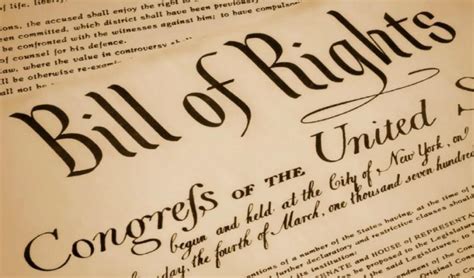 of life, liberty,
accused shall enjoy the right to a
been committed, which district shall have been
be confronted with the witnesses against him; to have compulso
of counsel for his defence.
Law, where the value in controversy shall
ll be otherwise re-exam
shall not
Bill of Rights
Congreſs OF THE United
begun and held at the City of New York, on
day, the fourth of March, one thousand seven hundred
ntions of a number of the States having, at the time of
declaratory and restrictive clauses should
SENATE and HOUSE of REPRESENTAT